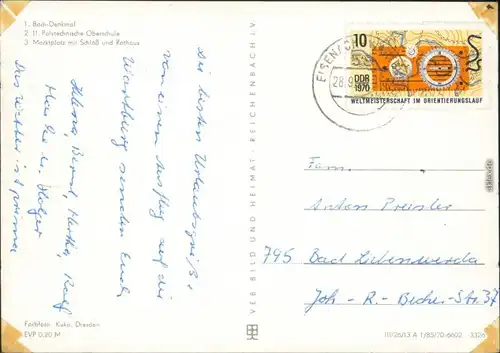 1. Bach-Denkmal
2. 11. Polytechnische Oberschule
3. Marktplatz mit Schloß und Rathaus
Die besten Urlaubsgrüße
von einem Ausflug auf die
Wartburg senden Euch
Helena, Bernd, Martha, Ralf
u. Holger
Das Wetter ist prima
Farbfoto: Kuka, Dresden
EVP 0,20 M
VEB BILD UND HEIMAT · REICHENBACH i. V.
10
DDR
1970
WELTMEISTERSCHAFT IM ORIENTIERUNGSLAUF
EISEN
28.9
Fam.
Anton Preisler
795 Bad Liebenwerda
Joh.-R.-Becher-Str. 37
III/26/13 A 1/85/70-6602 3326